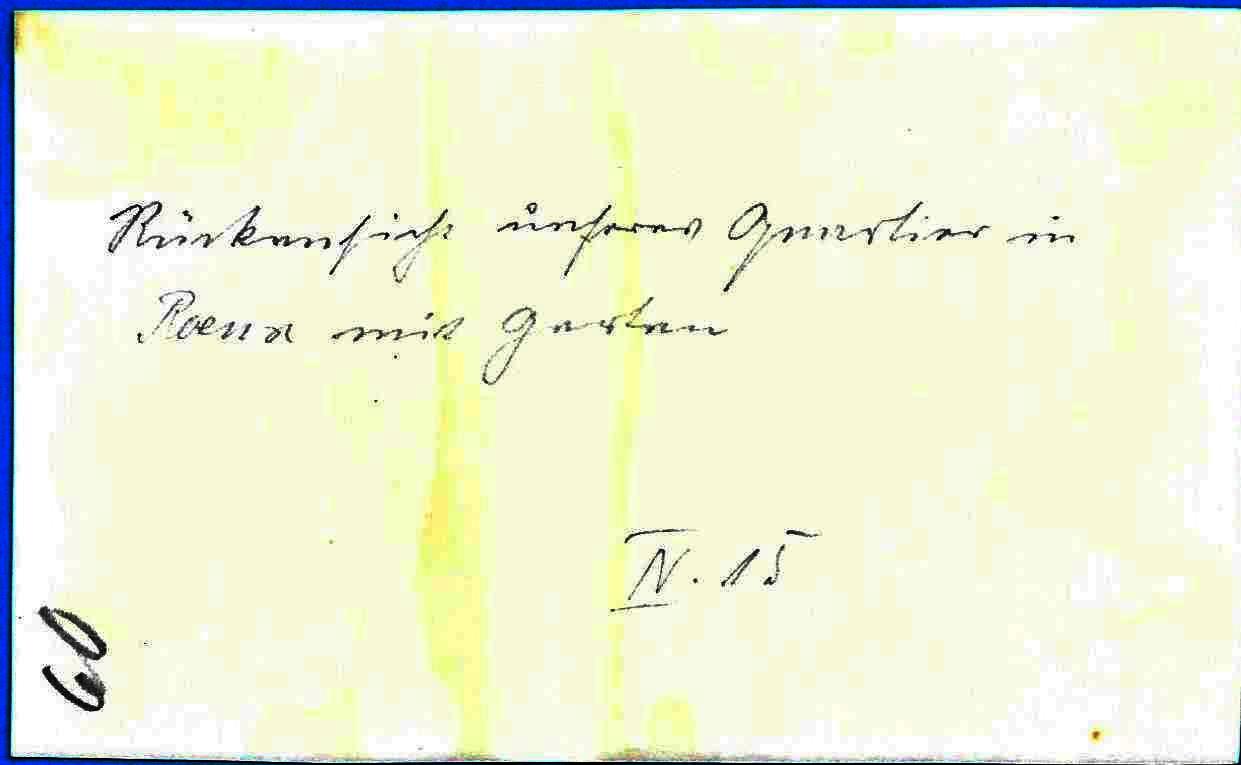 Rückansicht unseres Quartier in
Roena mit Garten
IV. 15
60